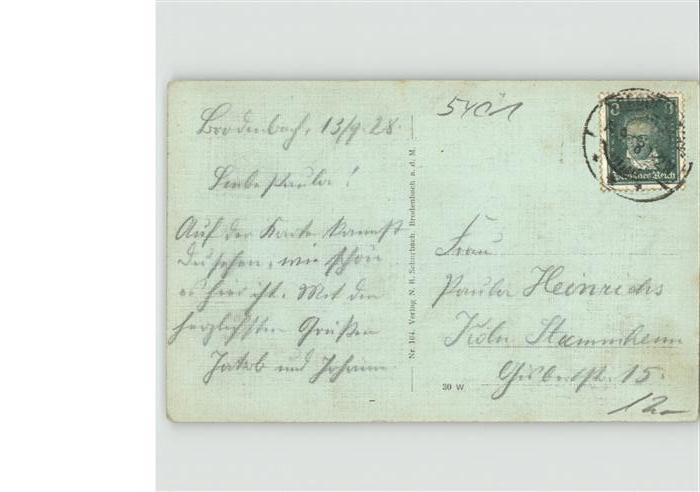 Brodenbach, 13/9.28.
Liebe Paula!
Auf der Karte kannst
Du sehen, wie schön
es hier ist. Mit den
herzlichsten Grüßen
Jakob und Johann
Nr. 164. Verlag N. H. Schurbach Brodenbach a. d. M.
5401
Deutsches Reich
Frau
Paula Heinrichs
Köln Stammheim
Gisbertstr. 15.
30 W
12.-